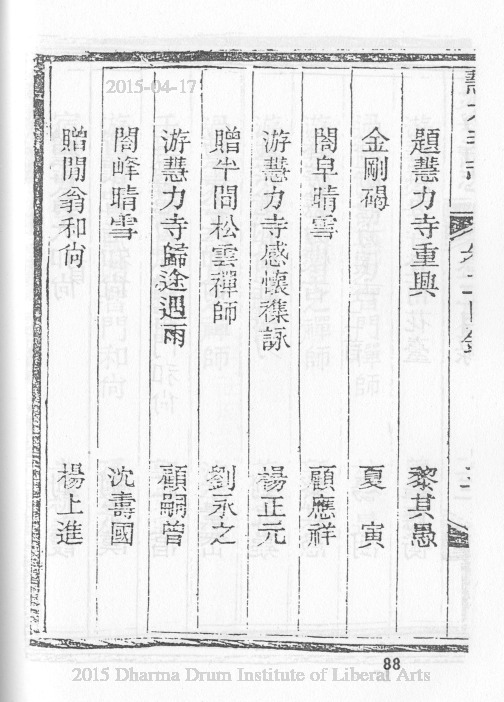 2015-04-17
題慧力寺重興 黎其愚
金剛碣 夏寅
閤皁晴雪 顧應祥
游慧力寺感懷襍詠 楊正元
贈半閒松雲禪師 劉永之
游慧力寺歸途遇雨 顧嗣曾
閤峰晴雪 沈壽國
贈閒翁和尙 楊上進
88
2015 Dharma Drum Institute of Liberal Arts